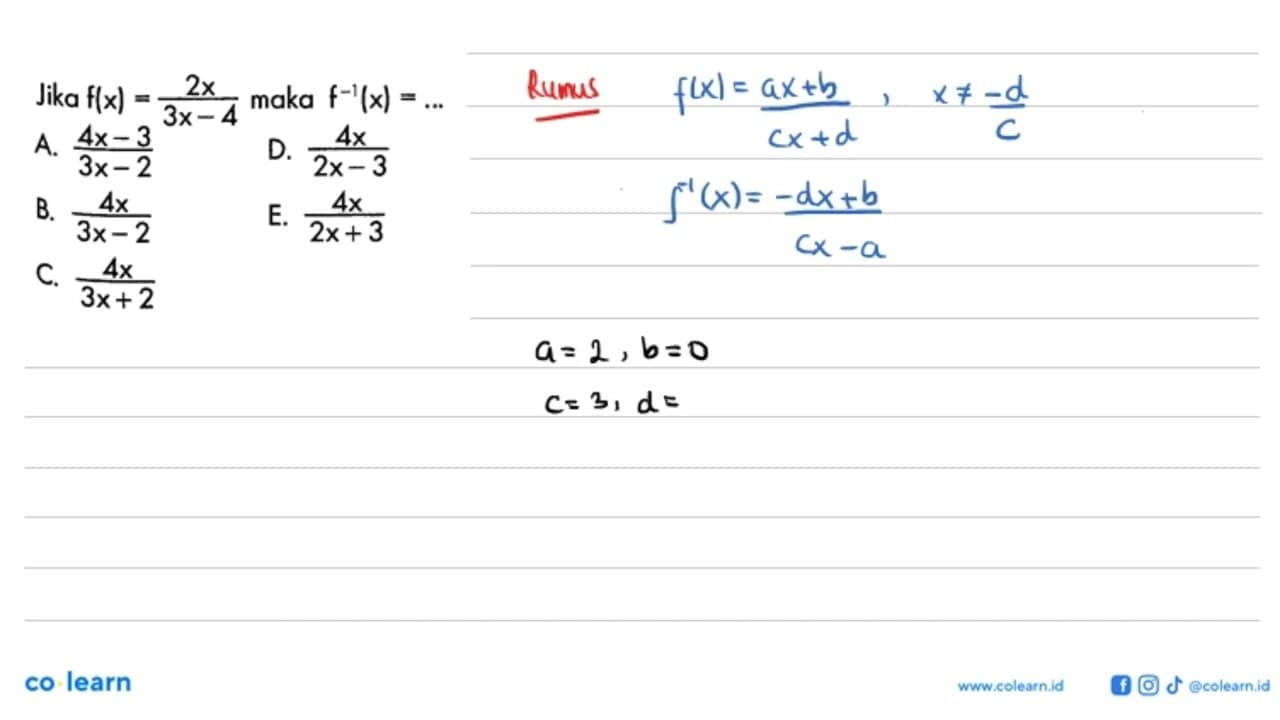 Jika f(x) = 2x/(3x − 4) maka f⁻¹(x) = ...
A. (4x − 3)/(3x − 2)
B. 4x/(3x − 2)
C. 4x/(3x + 2)
D. 4x/(2x − 3)
E. 4x/(2x + 3)
Rumus
f(x) = (ax+b)/(cx+d) , x ≠ -d/c
f⁻¹(x) = (-dx+b)/(cx-a)
a = 2 , b = 0
c = 3 , d =
co learn
www.colearn.id
@colearn.id